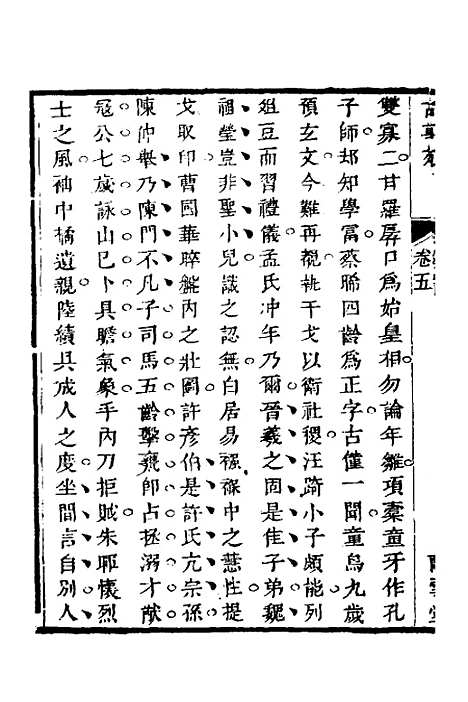 雙寡二甘羅孱口為始皇相勿論年雛項橐童牙作孔
子師却知學富蔡晞四齡為正字古僅一聞童烏九歲
預玄文今難再覩執干戈以衛社稷汪踦小子頗能列
俎豆而習禮儀孟氏冲年乃爾晉羲之固是佳子弟魏
祖瑩豈非聖小兒識之認無白居易襁褓中之慧性提
戈取印曹國華晬盤內之壯圖許彥伯是許氏亢宗孫
陳仲舉乃陳門不凡子司馬五齡擊甕即占拯溺才猷
冠公七歲詠山已卜具瞻氣象手內刀拒賊朱耶懷烈
士之風袖中橘遺親陸績具成人之度坐間言自別人
卷五